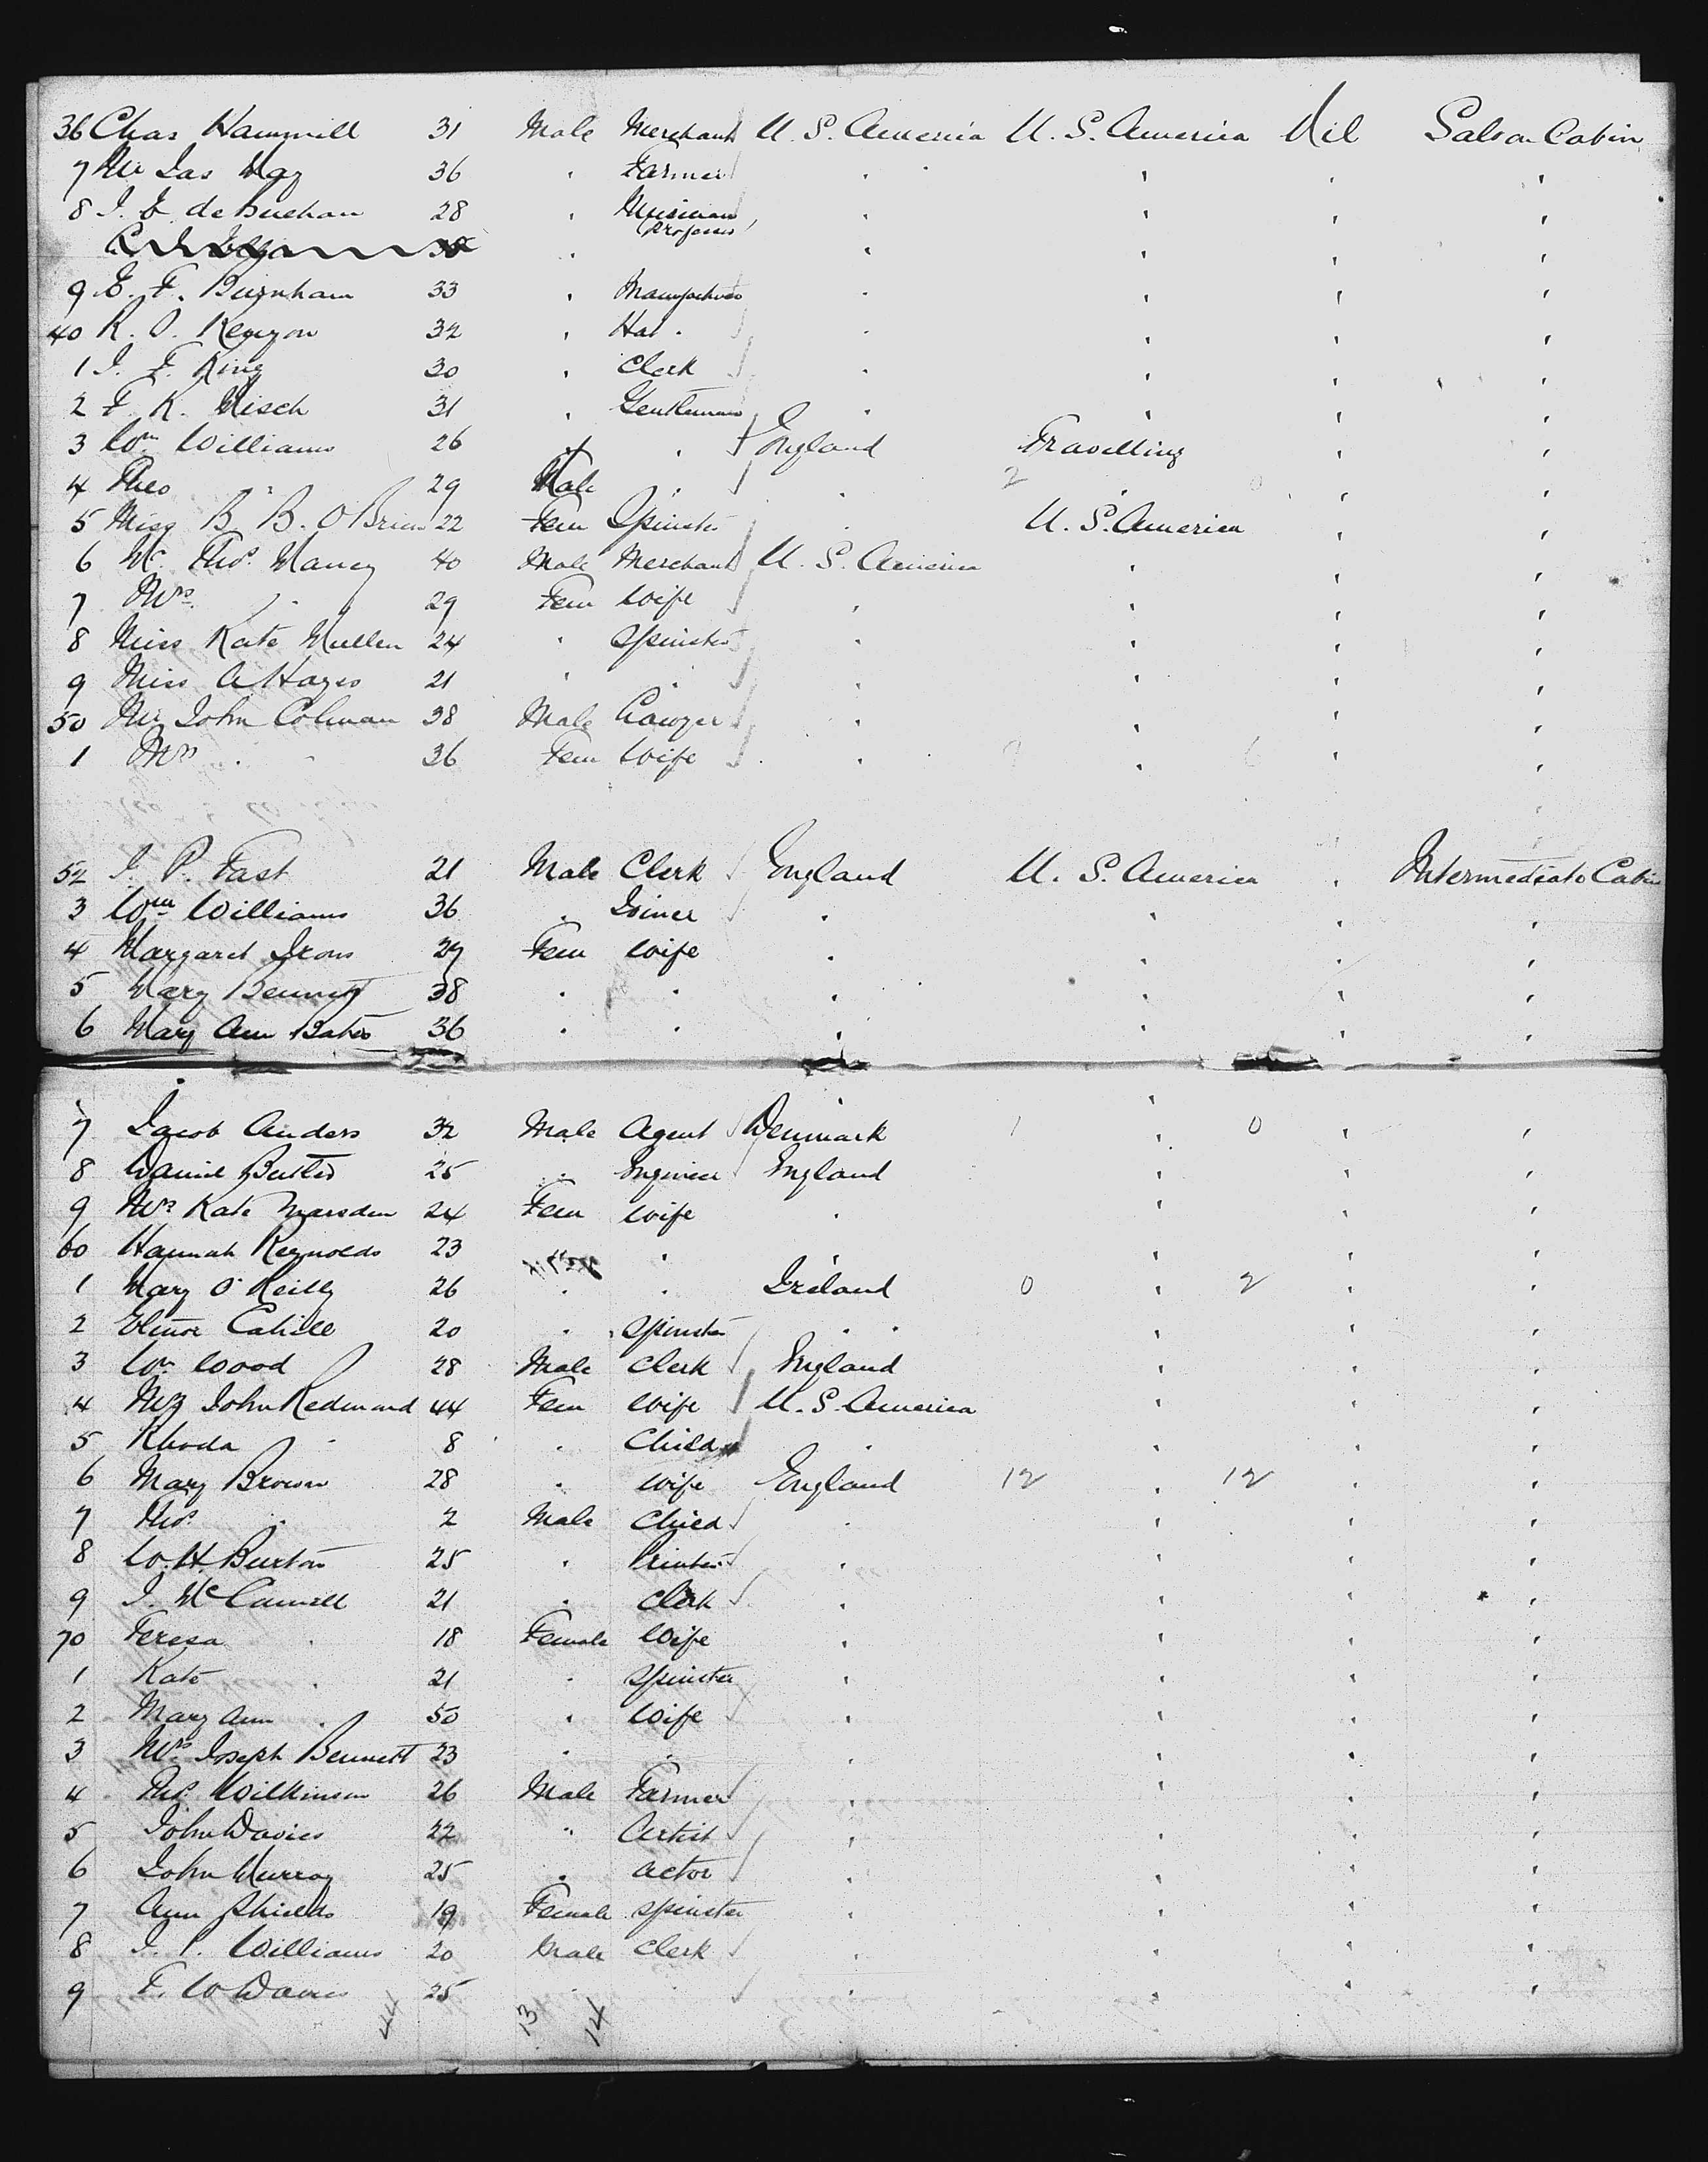 36 Chas Hammill 31 Male Merchant U. S. America U. S. America Nil Saloon Cabin
7 Mr Jas May 36 " Farmer " " " "
8 J. E. de Buchan 28 " Musician " " " "
Professor
" " " " "
9 E. F. Burnham 33 " Manufacturer " " " "
40 R. O. Kenyon 32 " Hat " " " " "
1 J. F. King 30 " Clerk " " " "
2 F. K. Misch 31 " Gentleman " " " "
3 Wm Williams 26 " " England Travelling " "
4 Theo " 29 Male " " 2 " " "
5 Miss B. B. O'Brien 22 Fem Spinster " U. S. America " "
6 Mr Thos. Maney 40 Male Merchant U. S. America " " "
7 Mrs. " 29 Fem Wife " " " "
8 Miss Kate Mullen 24 " Spinster " " " "
9 Miss A Hayes 21 " " " " " "
50 Mr John Colman 38 Male Lawyer " " " "
1 Mrs " 36 Fem Wife " " " "
52 J. P. Fast 21 Male Clerk England U. S. America " Intermediate Cabin
3 Wm Williams 36 " Joiner " " " "
4 Margaret Irons 29 Fem Wife " " " "
5 Mary Bennett 38 " " " " " "
6 Mary Ann Bates 36 " " " " " "
7 Jacob Anders 32 Male Agent Denmark 1 " 0 " "
8 Daniel Butler 25 " Engineer England " " "
9 Mrs Kate Marsden 24 Fem Wife " " " "
60 Hannah Reynolds 23 " " " " "
1 Mary O'Reilly 26 " " Ireland 0 " 2 " "
2 Elinor Cahill 20 " Spinster " " " "
3 Wm Wood 28 Male Clerk England " " "
4 Mrs John Redmond 44 Fem Wife U. S. America " " "
5 Rhoda " 8 " Child " " " "
6 Mary Brown 28 " Wife England 12 " 12 " "
7 Thos. " 2 Male Child " " " "
8 W. H. Burton 25 " Printer " " " "
9 J. McCannell 21 " Clerk " " " "
70 Teresa " 18 Female Wife " " " "
1 Kate " 21 " Spinster " " " "
2 Mary Ann " 50 " Wife " " " "
3 Mrs Joseph Bennett 23 " " " " " "
4 Thos. Wilkinson 26 Male Farmer " " " "
5 John Davies 22 " Artist " " " "
6 John Murray 25 " Actor " " " "
7 Ann Shields 19 Female Spinster " " " "
8 J. P. Williams 20 Male Clerk " " " "
9 F. W Davies 25 " " " " " "
44 13 14